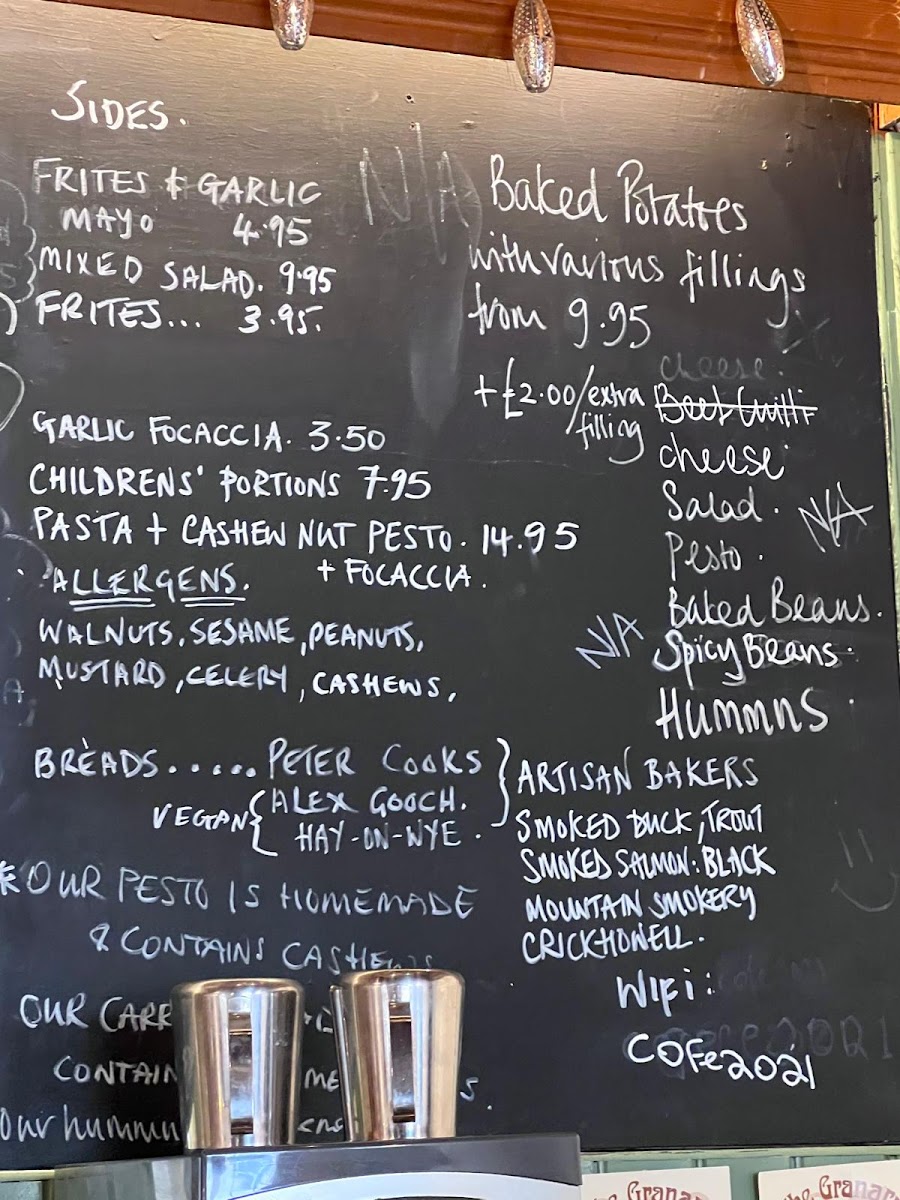 SIDES.
FRITES & GARLIC
MAYO 4.95
MIXED SALAD. 9.95
FRITES... 3.95.
GARLIC FOCACCIA. 3.50
CHILDRENS' PORTIONS 7.95
PASTA + CASHEW NUT PESTO. 14.95
+ FOCACCIA.
ALLERGENS.
WALNUTS, SESAME, PEANUTS,
MUSTARD, CELERY, CASHEWS,
BREADS..... PETER COOKS
VEGAN { ALEX GOOCH.
HAY-ON-WYE.
} ARTISAN BAKERS
*OUR PESTO IS HOMEMADE
& CONTAINS CASHEWS
OUR
CONTAIN
Our
N/A
Baked Potatoes
with various fillings
from 9.95
+£2.00/extra
filling
cheese.
cheese
Salad.
Pesto.
N/A
Baked Beans.
N/A
Spicy Beans.
Hummns.
SMOKED DUCK, TROUT
SMOKED SALMON: BLACK
MOUNTAIN SMOKERY
CRICKHOWELL.
WIFI:
COFe2021
the Granar